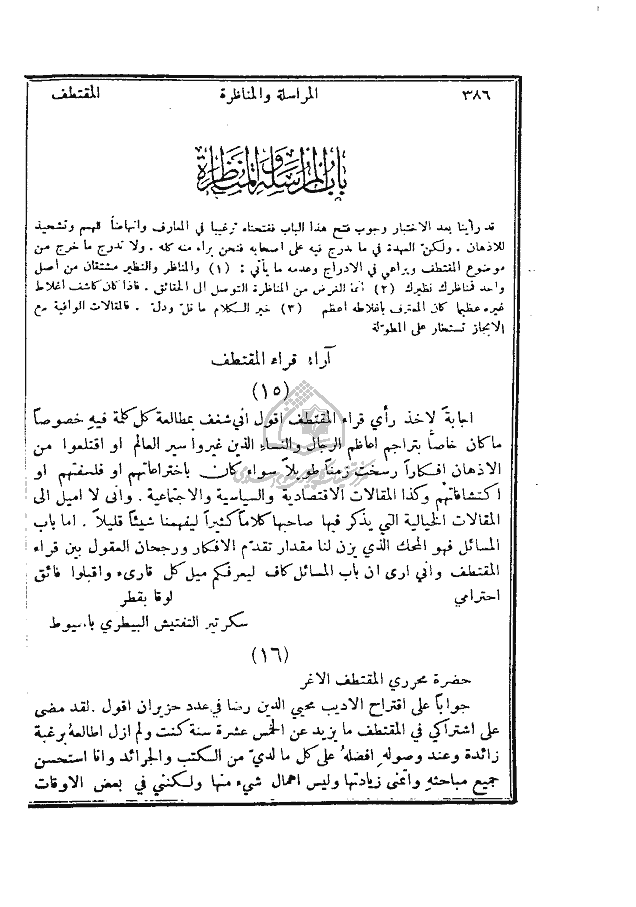 ٣٨٦ المراسلة والمناظرة المقتطف
باب المراسلة والمناظرة
قد رأينا بعد الاختبار وجوب فتح هذا الباب ففتحناه ترغيبا في المعارف وانهاضاً للهمم وتشحيذا
للاذهان . ولكنّ العهدة في ما يدرج فيه على اصحابه فنحن براء منه كله . ولا ندرج ما خرج عن
موضوع المقتطف ونراعي في الادراج وعدمه ما يأتي : (١) والمناظر والنظير مشتقان من أصل
واحد فمناظرك نظيرك (٢) انما الغرض من المناظرة التوصل الى الحقائق . فاذا كان كاشف أغلاط
غيره عظيما كان المعترف باغلاطه أعظم (٣) خير الكلام ما قل ودل . فالمقالات الوافية مع
الايجاز تستخار على المطوّلة
آراء قراء المقتطف
(١٥)
اجابةً لاخذ رأي قراء المقتطف اقول اني شغف بمطالعة كل كلمة فيهِ خصوصاً
ما كان خاصاً بتراجم اعاظم الرجال والنساء الذين غيروا سير العالم او اقتلعوا من
الاذهان افكاراً رسخت زمناً طويلاً سواء كان باختراعاتهم او فلسفتهم او
اكتشافاتهم وكذا المقالات الاقتصادية والسياسية والاجتماعية . واني لا اميل الى
المقالات الخيالية التي يذكر فيها صاحبها كلاماً كثيراً ليفهمنا شيئاً قليلاً . اما باب
المسائل فهو المحك الذي يزن لنا مقدار تقدّم الافكار ورجحان العقول بين قراء
المقتطف واني ارى ان باب المسائل كاف ليعرفكم ميل كل قارىء واقبلوا فائق
احترامي لوقا بقطر
سكرتير التفتيش البيطري باسيوط
(١٦)
حضرة محرري المقتطف الاغر
جواباً على اقتراح الاديب محيي الدين رضا في عدد حزيران اقول . لقد مضى
على اشتراكي في المقتطف ما يزيد عن الخمس عشرة سنة كنت ولم ازل اطالعهُ برغبة
زائدة وعند وصولهِ افضلهُ على كل ما لديّ من الكتب والجرائد وانا استحسن
جميع مباحثهِ واتمنى زيادتها وليس اهمال شيء منها ولكنني في بعض الاوقات